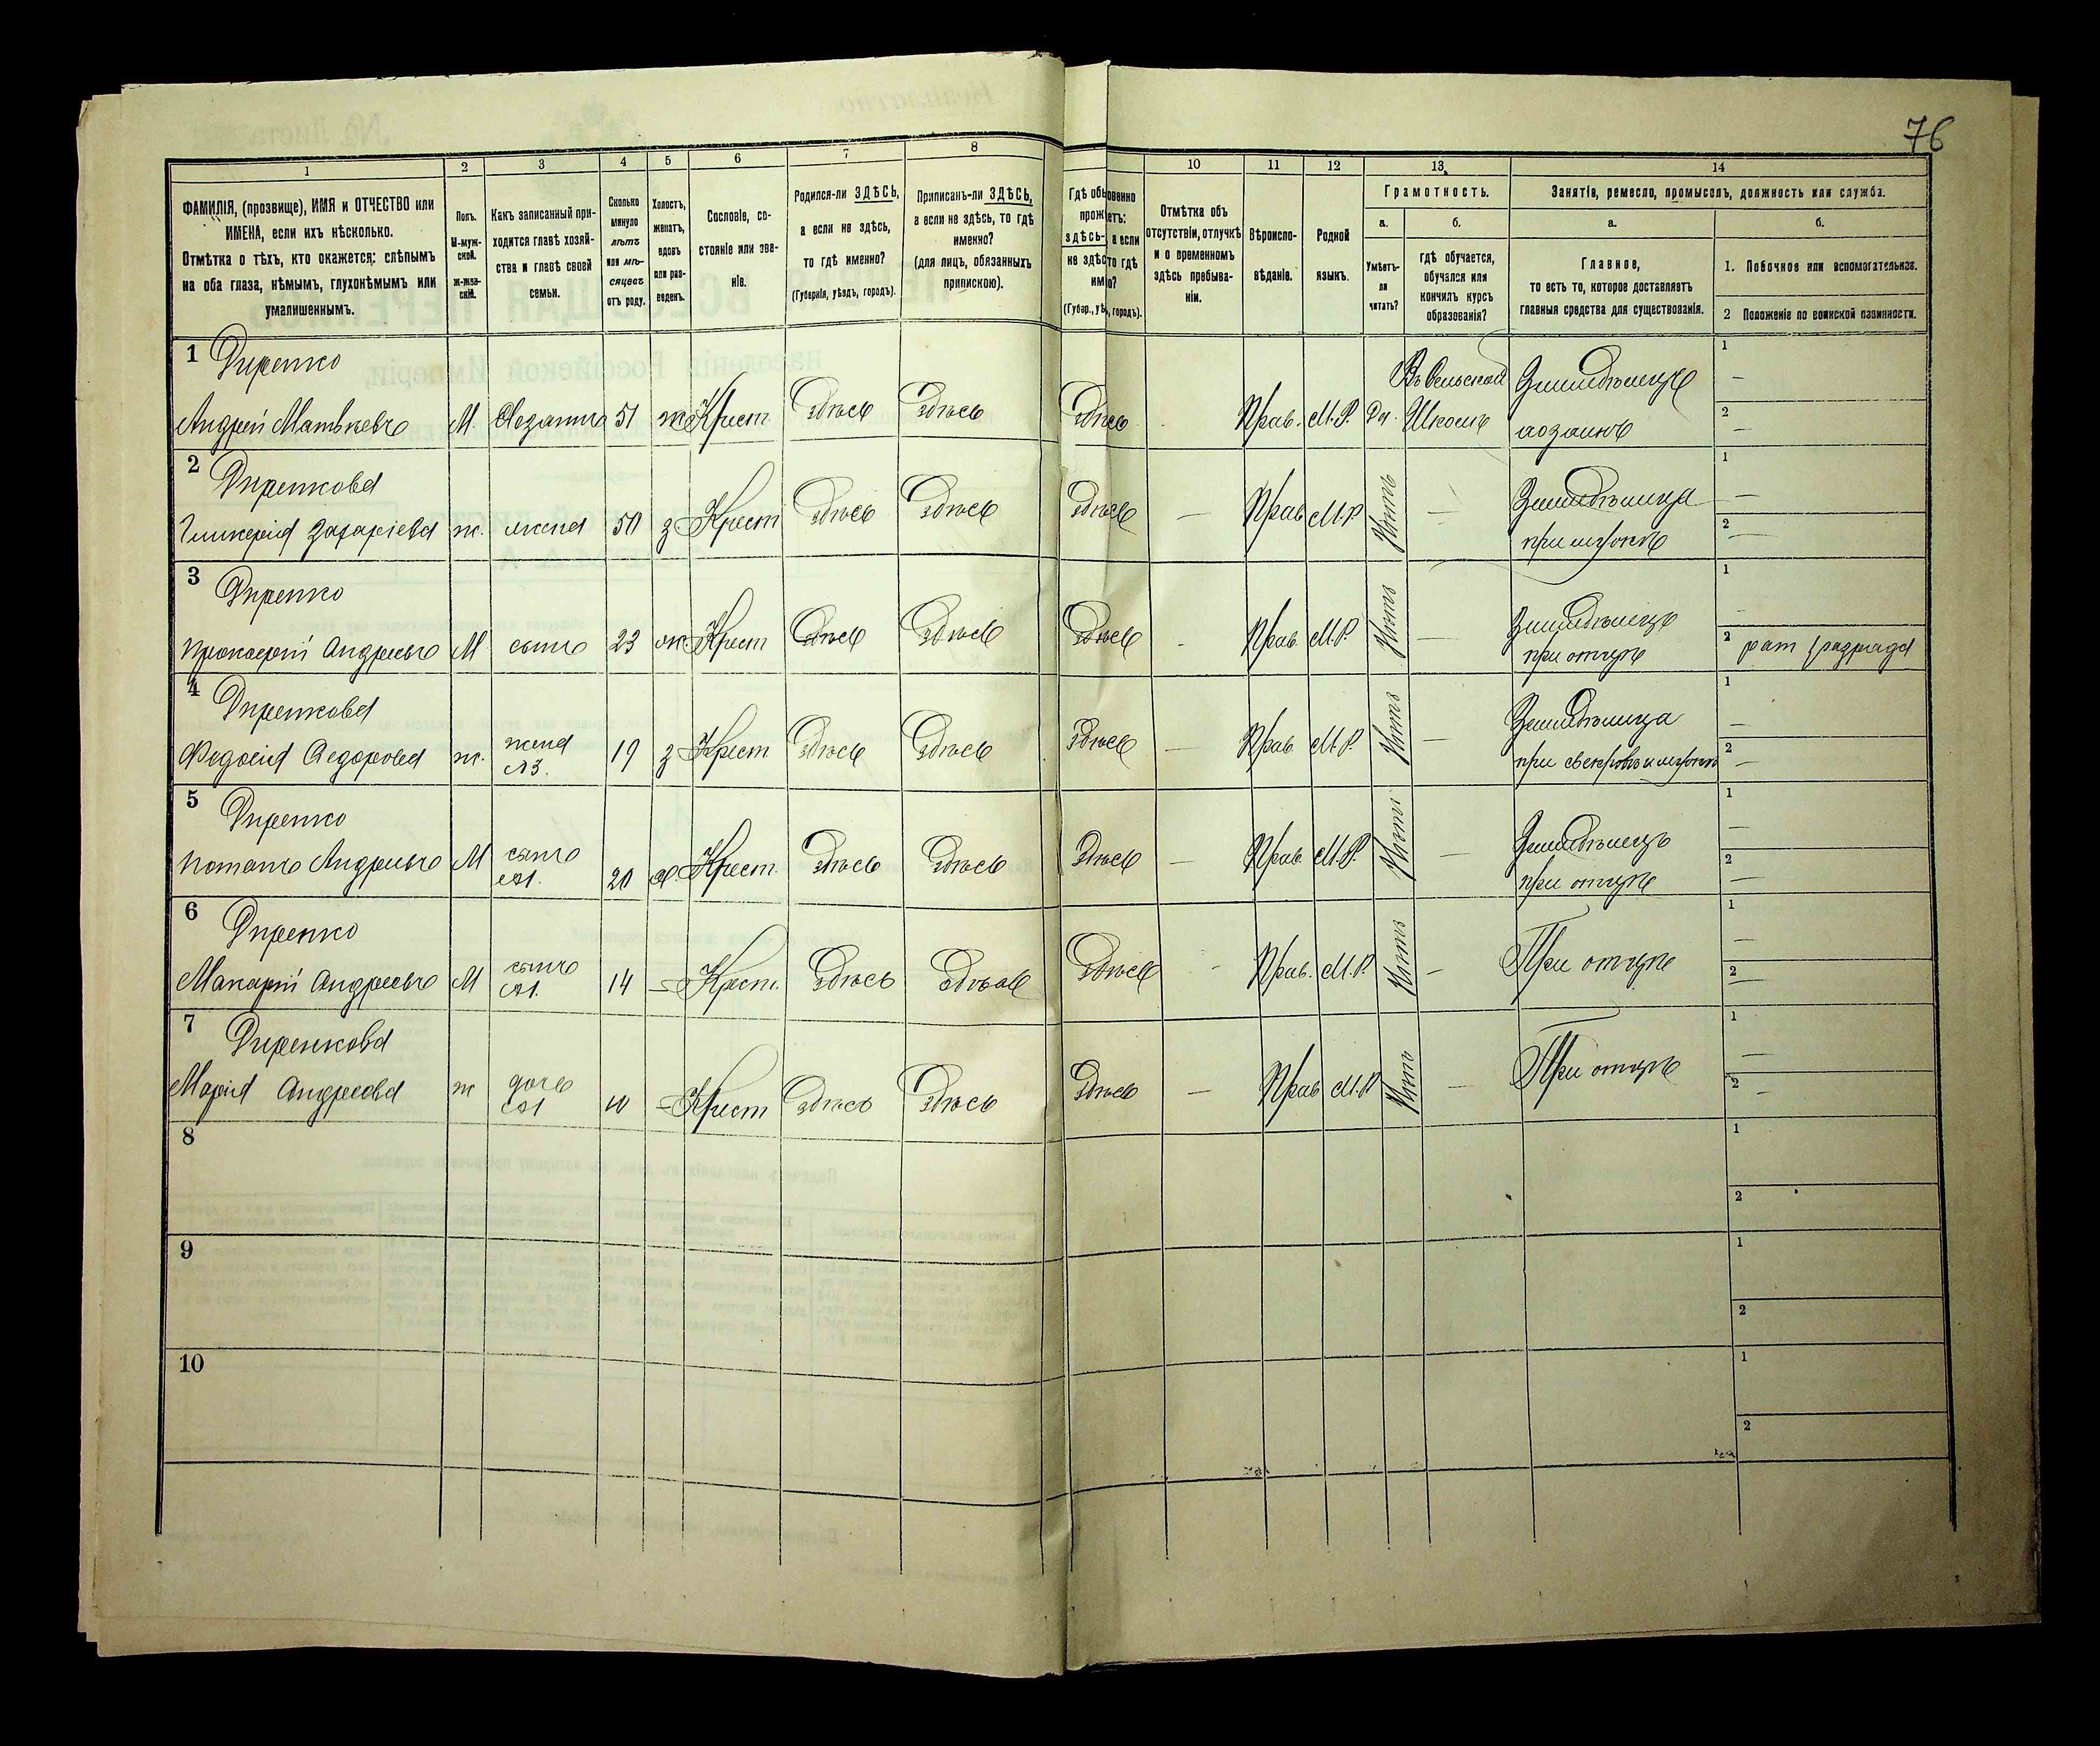 76
1 2 3 4 5 6 7 8 10 11 12 13 14
ФАМИЛІЯ, (прозвище), ИМЯ и ОТЧЕСТВО или ИМЕНА, если ихъ нѣсколько.
Отмѣтка о тѣхъ, кто окажется: слѣпымъ на оба глаза, нѣмымъ, глухонѣмымъ или умалишеннымъ.
Полъ. М-мужской. Ж-женскій.
Какъ записанный приходится главѣ хозяйства и главѣ своей семьи.
Сколько минуло лѣтъ или мѣсяцевъ отъ роду.
Холостъ, женатъ, вдовъ или разведенъ.
Сословіе, состояніе или званіе.
Родился-ли ЗДѢСЬ, а если не здѣсь, то гдѣ именно?
(Губернія, уѣздъ, городъ).
Приписанъ-ли ЗДѢСЬ, а если не здѣсь, то гдѣ именно?
(для лицъ, обязанныхъ припискою).
Отмѣтка объ отсутствіи, отлучкѣ и о временномъ здѣсь пребываніи.
Вѣроисповѣданіе.
Родной языкъ.
Грамотность.
а. Умѣетъ-ли читать?
б. гдѣ обучается, обучался или кончилъ курсъ образованія?
Занятіе, ремесло, промыселъ, должность или служба.
а. Главное, то есть то, которое доставляетъ главныя средства для существованія.
б.
1. Побочное или вспомогательное.
2 Положеніе по воинской повинности.
1 Диренко
Андрей Матвѣевъ М. Хозяинъ 51 ж Крест. здѣсь здѣсь здѣсь Прав. М.Р. Да. Въ Сельской Школѣ Земледѣлецъ хозяинъ
2 Диренкова
Гликерія Захаріева ж. жена 50 з Крест здѣсь здѣсь здѣсь — Прав М.Р. Нѣтъ — Земледѣлица при мужѣ
3 Диренко
Прокофій Андреевъ М сынъ 23 ж. Крест здѣсь здѣсь здѣсь - Прав. М.Р. Нѣтъ — Земледѣлецъ при отцѣ
2 рат. разряда
4 Диренкова
Федосія Федорова ж. жена №3. 19 з Крест здѣсь здѣсь здѣсь — Прав М.Р. Нѣтъ — Земледѣлица при свекровѣ и мужѣ
5 Диренко
Потапъ Андреевъ М сынъ 20 х. Крест. здѣсь здѣсь здѣсь — Прав М.Р. Нѣтъ — Земледѣлецъ при отцѣ
6 Диренко
Макарій Андреевъ М сынъ 14 — Крест. здѣсь здѣсь здѣсь - Прав. М.Р. Нѣтъ — При отцѣ
7 Диренкова
Марія Андреева ж дочь 10 — Крест здѣсь здѣсь здѣсь — Прав М.Р Нѣтъ — При отцѣ
8
9
10